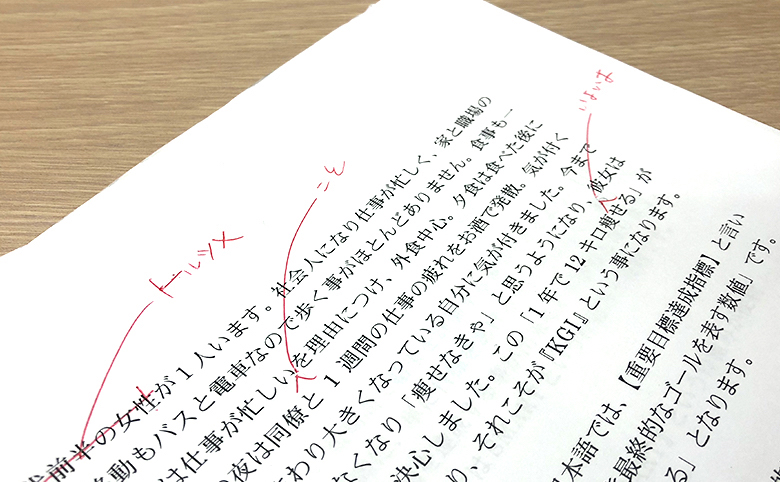 いよいよ
こと
トルツメ
前半の女性が1人います。社会人になり仕事が忙しく、家と職場の
移動もバスと電車なので歩く事がほとんどありません。食事も一
は仕事が忙しいを理由につけ、外食中心。夕食は食べた後に
の夜は同僚と1週間の仕事の疲れをお酒で発散。気が付く
まわり大きくなっている自分に気が付きました。今まで
なくなり「痩せなきゃ」と思うようになり、彼女は
決心しました。この「1年で12キロ痩せる」が
り、それこそが『KGI』という事になります。
日本語では、【重要目標達成指標】と言い
最終的なゴールを表す数値」です。
る」となります。